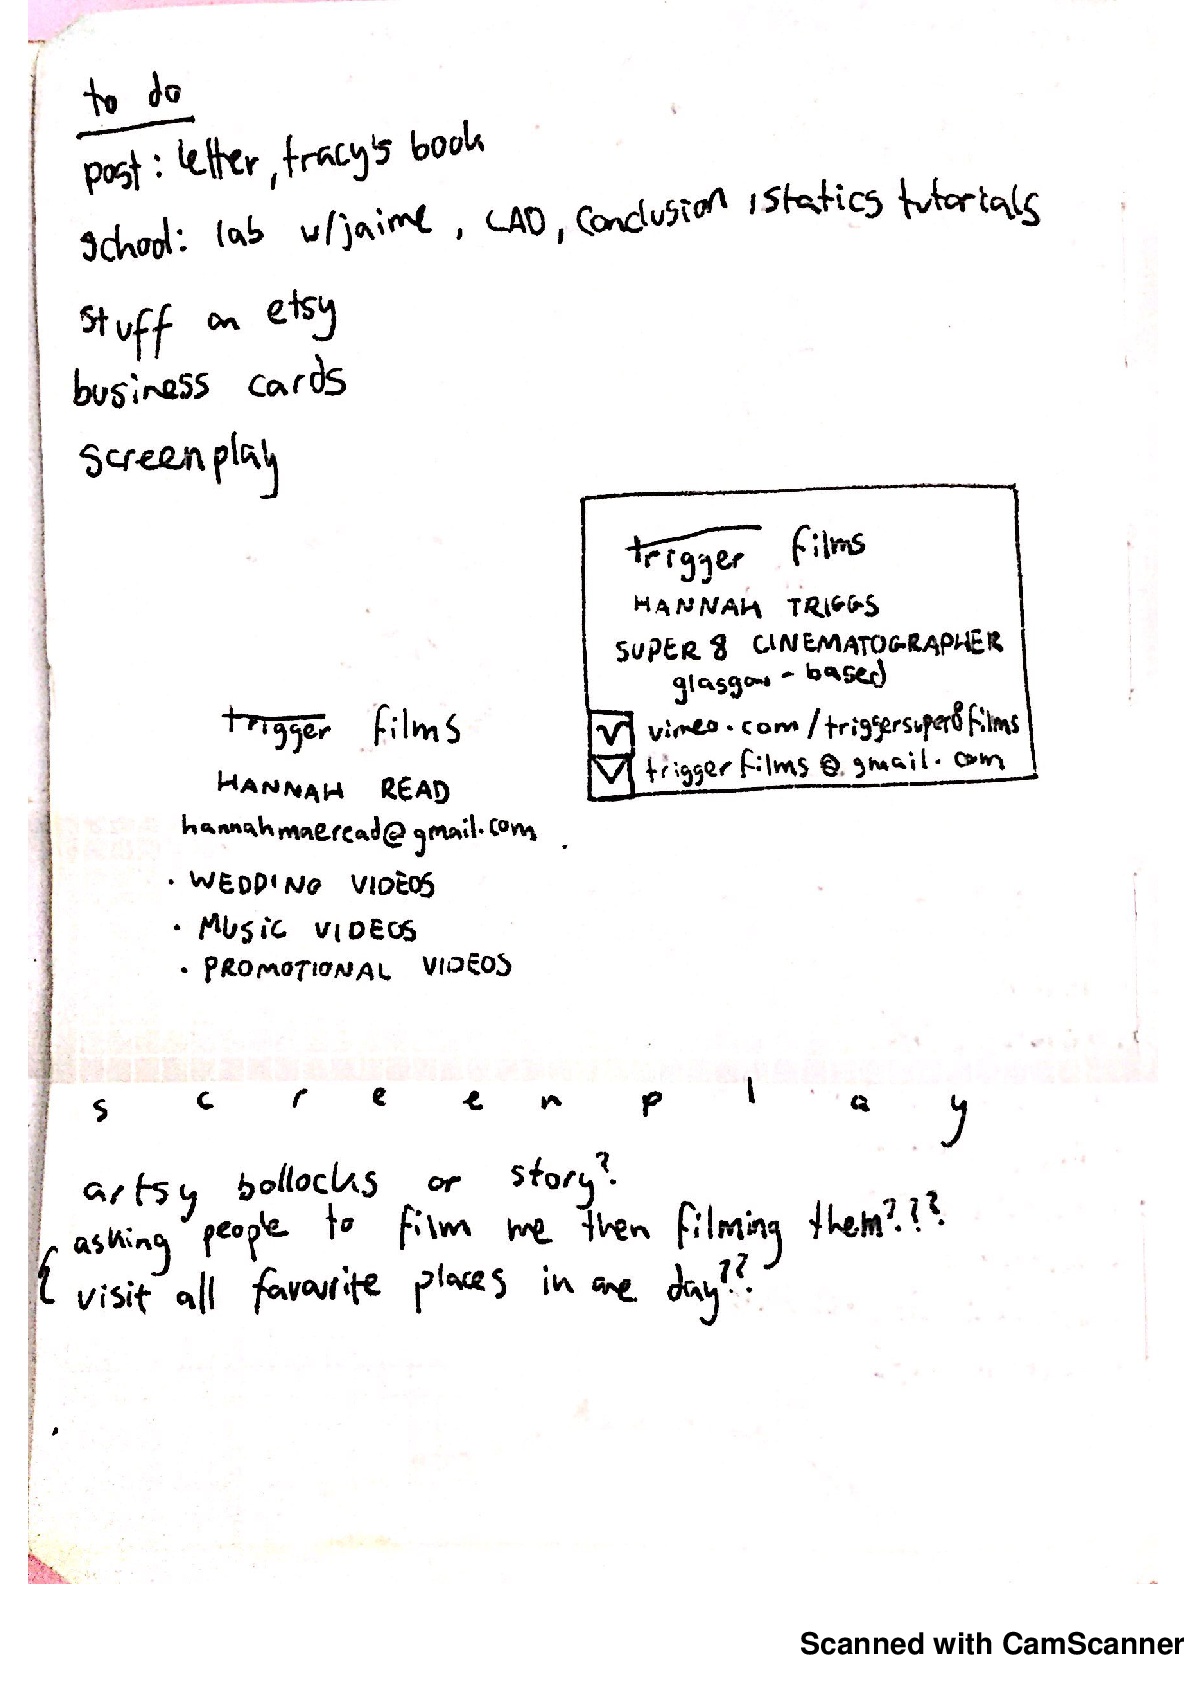 to do
post: letter, tracy's book
school: lab w/jaime, CAD, Conclusion, statics tutorials
stuff on etsy
business cards
screenplay
trigger films
HANNAH TRIGGS
SUPER 8 CINEMATOGRAPHER
glasgow-based
vimeo.com/triggersuper8films
triggerfilms@gmail.com
trigger films
HANNAH READ
hannahmaeread@gmail.com
· WEDDING VIDEOS
· MUSIC VIDEOS
· PROMOTIONAL VIDEOS
s c r e e n p l a y
artsy bollocks or story?
asking people to film me then filming them???
visit all favourite places in one day??
Scanned with CamScanner